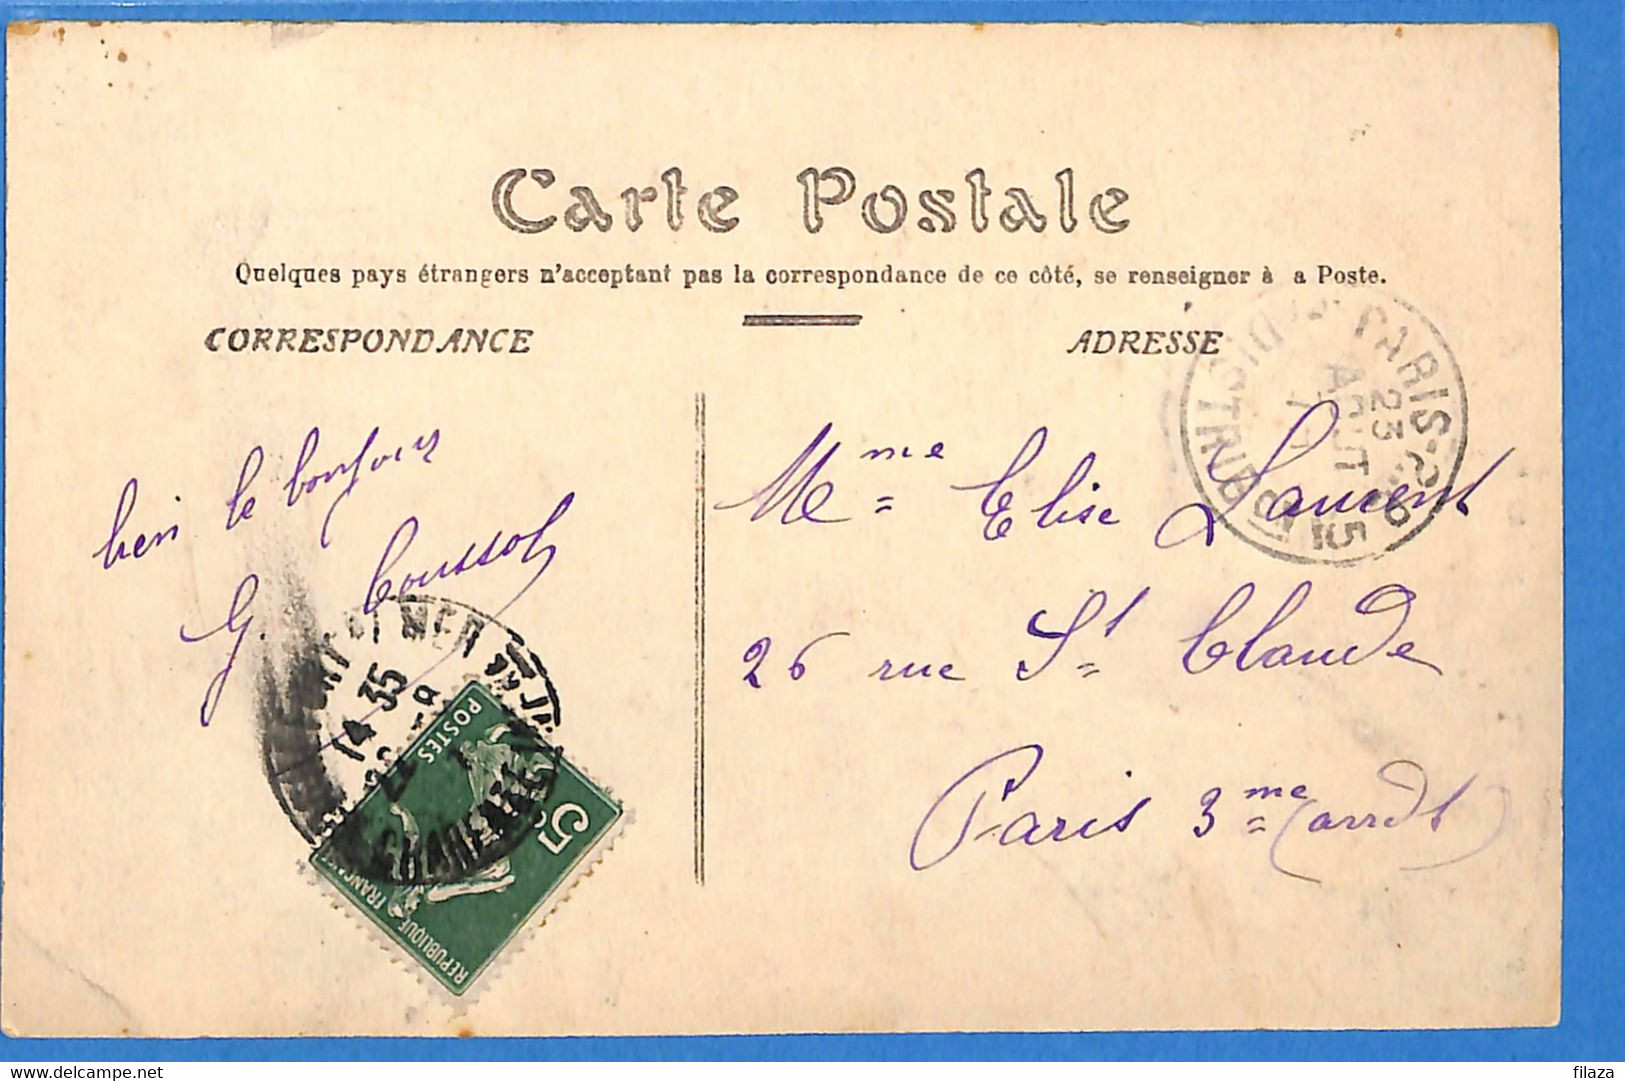 Carte Postale
Quelques pays étrangers n'acceptant pas la correspondance de ce côté, se renseigner à a Poste.
CORRESPONDANCE
ADRESSE
bien le bonjour
G.
Mme Elise Laurent
26 rue St Claude
Paris 3me (arrdt)
PARIS
23
AOUT
DISTRIBUTION
MER
14 35
POSTES
5
REPUBLIQUE FRANCAISE
filaza